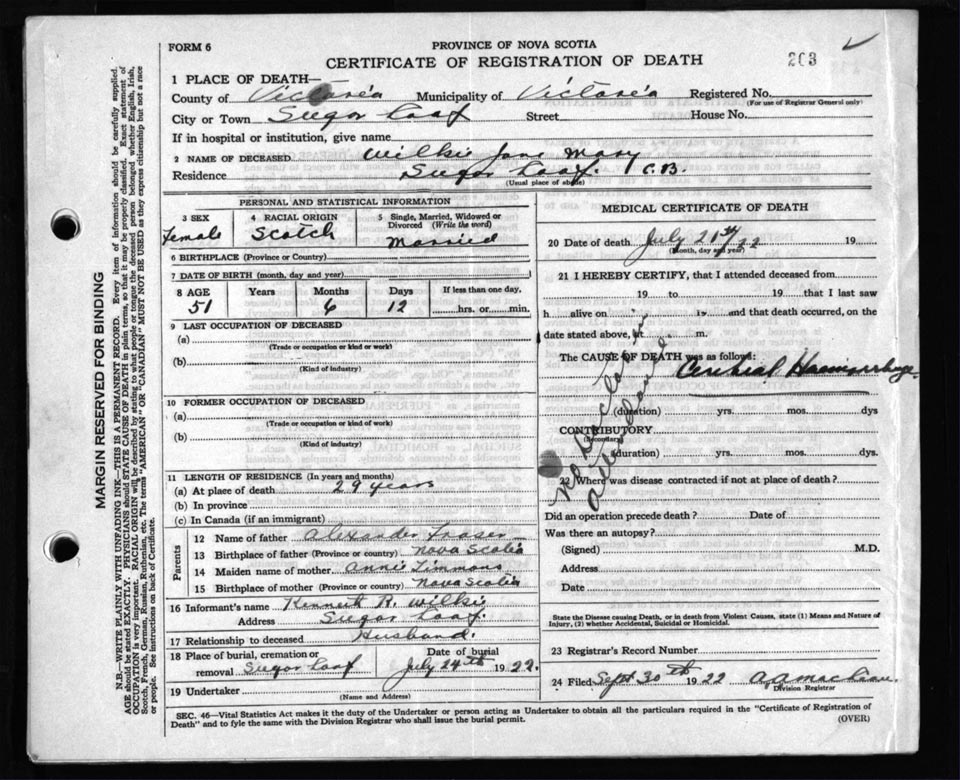 FORM 6
PROVINCE OF NOVA SCOTIA
CERTIFICATE OF REGISTRATION OF DEATH
203
1 PLACE OF DEATH—
County of Victoria Municipality of Victoria Registered No.
(For use of Registrar General only)
City or Town Sugar Loaf Street House No.
If in hospital or institution, give name
2 NAME OF DECEASED Wilkie Jane Mary
Residence Sugar Loaf. C.B.
(Usual place of abode)
PERSONAL AND STATISTICAL INFORMATION
3 SEX
Female
4 RACIAL ORIGIN
Scotch
5 Single, Married, Widowed or Divorced (Write the word)
Married
6 BIRTHPLACE (Province or Country)
7 DATE OF BIRTH (month, day and year)
8 AGE Years Months Days If less than one day,
51 6 12 hrs. or min.
9 LAST OCCUPATION OF DECEASED
(a)
(Trade or occupation or kind or work)
(b)
(Kind of industry)
10 FORMER OCCUPATION OF DECEASED
(a)
(Trade or occupation or kind of work)
(b)
(Kind of industry)
11 LENGTH OF RESIDENCE (In years and months)
(a) At place of death 29 years
(b) In province
(c) In Canada (if an immigrant)
Parents
12 Name of father Alexander Fraser
13 Birthplace of father (Province or country) Nova Scotia
14 Maiden name of mother Annie Timmons
15 Birthplace of mother (Province or country) Nova Scotia
16 Informant's name Kenneth R. Wilkie
Address Sugar Loaf.
17 Relationship to deceased Husband.
18 Place of burial, cremation or Date of burial
removal Sugar Loaf July 24th 1922.
19 Undertaker
(Name and Address)
MEDICAL CERTIFICATE OF DEATH
20 Date of death July 21st/22 19
(Month, day and year)
21 I HEREBY CERTIFY, that I attended deceased from
19 to 19 that I last saw
h alive on 19 and that death occurred, on
date stated above, at m.
The CAUSE OF DEATH was as follows:
Cerebral Haemorrhage.
(duration) yrs. mos. dys
CONTRIBUTORY
(Secondary)
(duration) yrs. mos. dys.
No Doctor in attendance
22 Where was disease contracted if not at place of death?
Did an operation precede death? Date of
Was there an autopsy?
(Signed) M.D.
Address
Date
State the Disease causing Death, or in death from Violent Causes, state (1) Means and Nature of Injury, (2) whether Accidental, Suicidal or Homicidal.
23 Registrar's Record Number
24 Filed Sept 30th 1922
Division Registrar
SEC. 46—Vital Statistics Act makes it the duty of the Undertaker or person acting as Undertaker to obtain all the particulars required in the "Certificate of Registration of
Death" and to fyle the same with the Division Registrar who shall issue the burial permit.
(OVER)
MARGIN RESERVED FOR BINDING
N.B.—WRITE PLAINLY WITH UNFADING INK—THIS IS A PERMANENT RECORD. Every item of information should be carefully supplied.
AGE should be stated EXACTLY. PHYSICIANS should STATE CAUSE OF DEATH in plain terms, so that it may be properly classified. Exact statement of
OCCUPATION is very important. RACIAL ORIGIN will be described by stating to what people or tongue the deceased person belonged whether English, Irish,
Scotch, French, German, Russian, Ruthenian, etc. The terms "AMERICAN" OR "CANADIAN" MUST NOT BE USED as they express citizenship but not a race
or people. See instructions on back of Certificate.